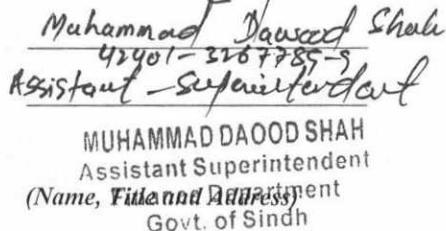 Muhammad Dawood Shah
42401-3267785-9
Assistant - Superintendent
MUHAMMAD DAOOD SHAH
Assistant Superintendent
(Name, Title and Address)
Finance Department
Govt. of Sindh